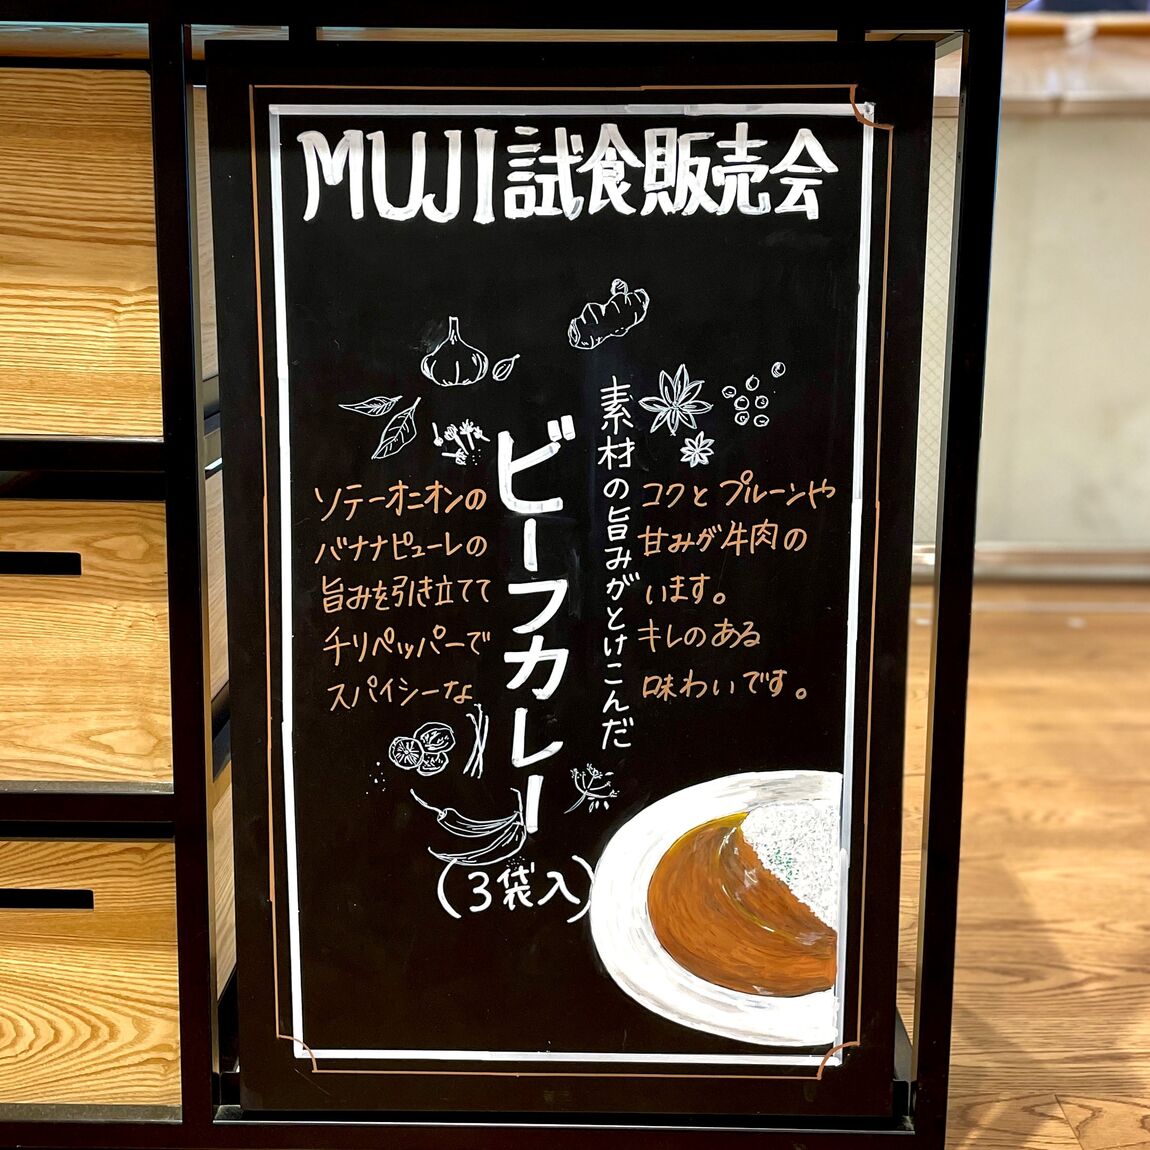 MUJI試食販売会
素材の旨みがとけこんだ
ビーフカレー
(3袋入)
ソテーオニオンの
コクと プルーンや
バナナピューレの
甘みが 牛肉の
旨みを引き立てて
います。
チリペッパーで
キレのある
スパイシーな
味わいです。